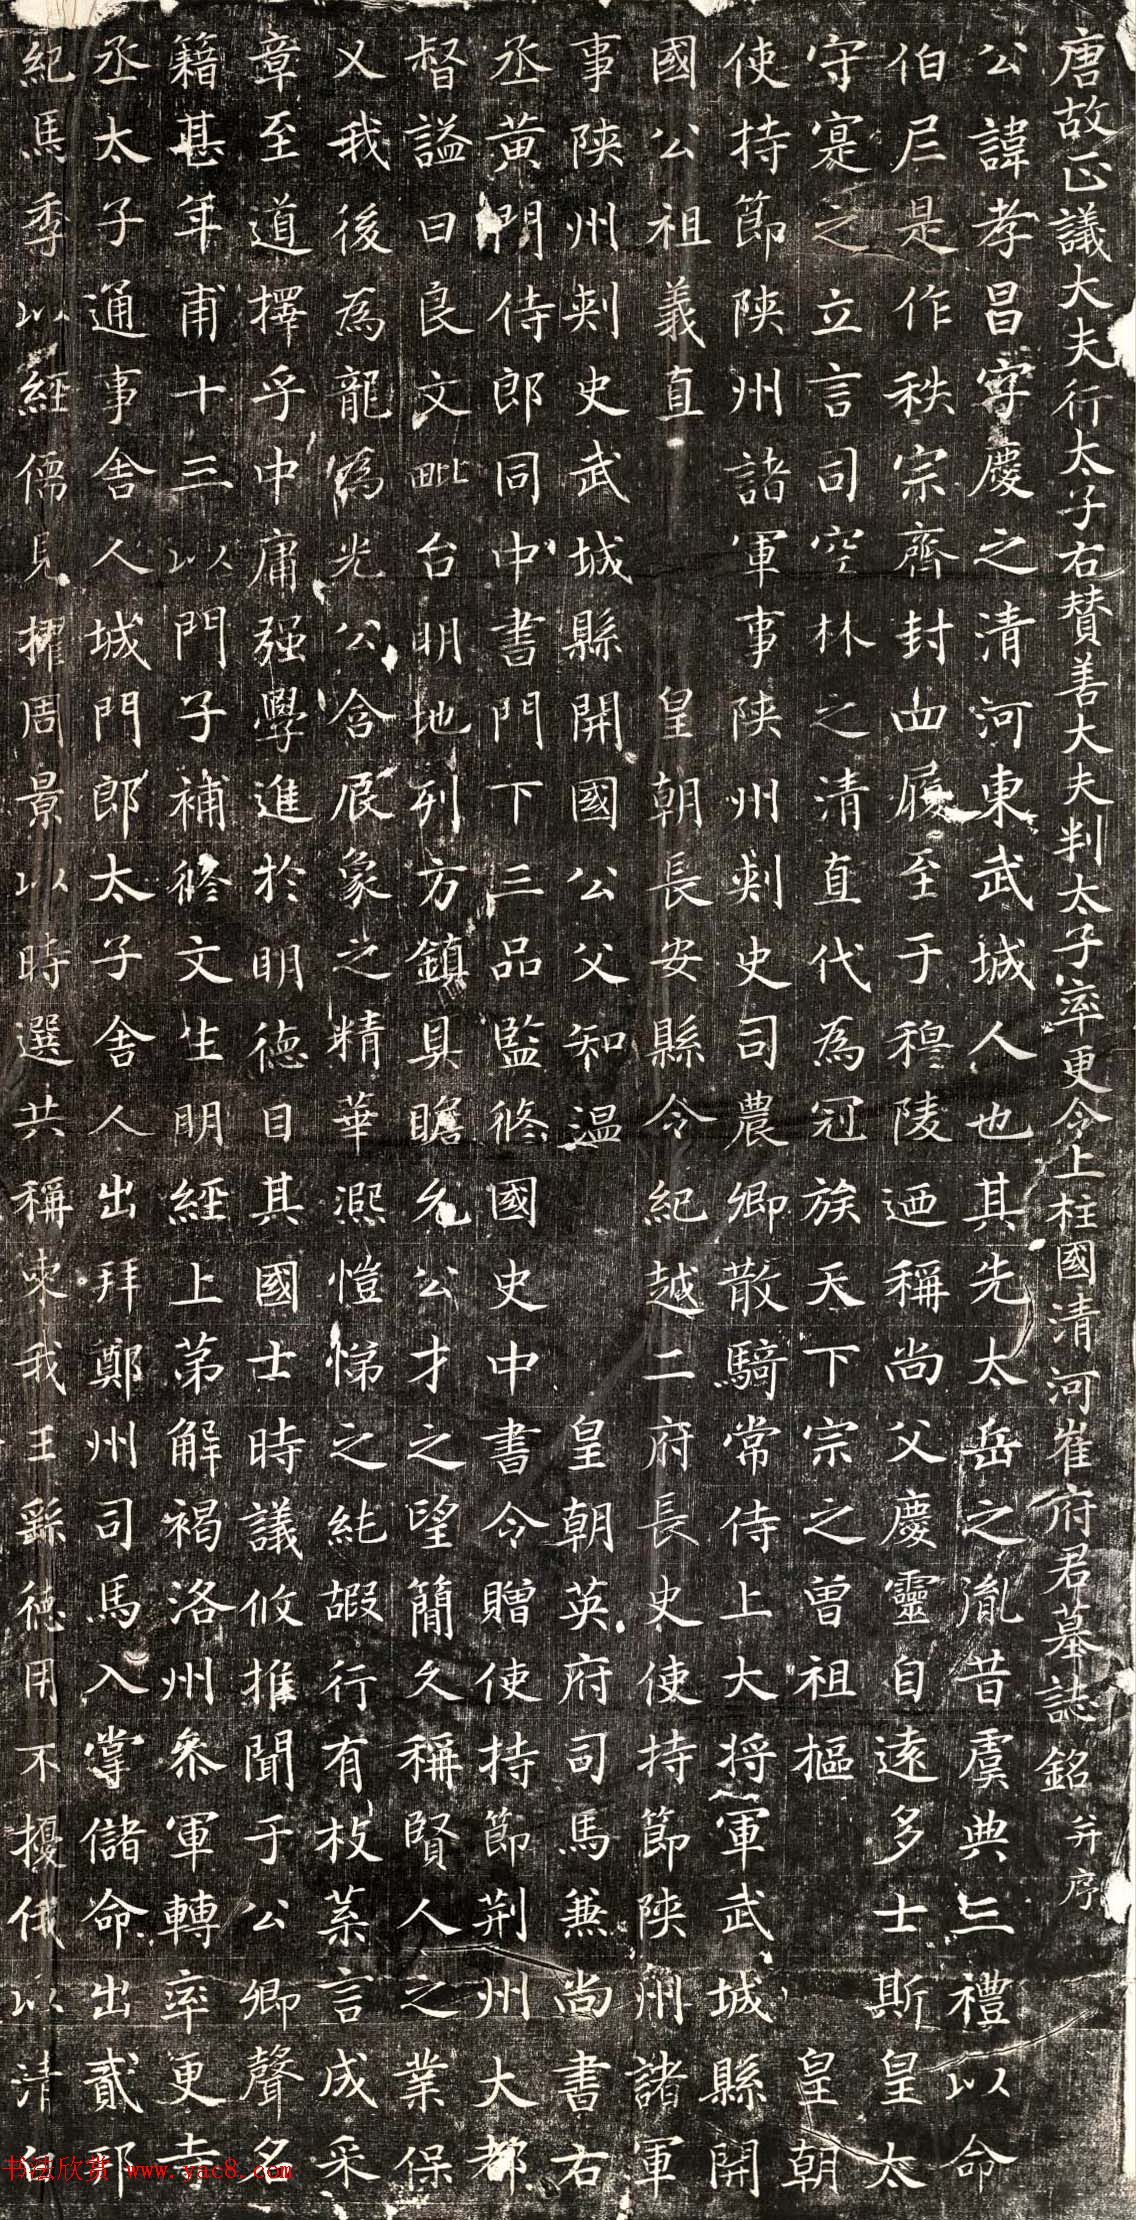 唐故正議大夫行太子右贊善大夫判太子率更令上柱國清河崔府君墓誌銘并序
公諱孝昌字慶之清河東武城人也其先太岳之胤昔虞典三禮以命
伯尼是作秩宗齊封四履至于穆陵迺稱尚父慶靈自遠多士斯皇太
守寔之立言司空林之清直代為冠族天下宗之曾祖樞皇朝
使持節陝州諸軍事陝州刺史司農卿散騎常侍上大將軍武城縣開
國公祖義直皇朝長安縣令紀越二府長史使持節陝州諸軍
事陝州刺史武城縣開國公父知溫皇朝英府司馬兼尚書右
丞黃門侍郎同中書門下三品監修國史中書令贈使持節荊州大都
督謚曰良文毗台明地列方鎮具瞻允公才之望簡久稱賢人之業保
乂我後為龍為光公含辰象之精華熙愷悌之純嘏行有枝葉言成采
章至道擇乎中庸强學進於明德目其國士時議攸推聞于公卿聲名
籍甚年甫十三以門子補脩文生明經上第解褐洛州參軍轉率更寺
丞太子通事舍人城門郎太子舍人出拜鄭州司馬入掌儲命出貳邦
紀馬季以經儒見擢周景以時選共稱東我王繇德用不擾俄以清白
书法欣赏 www.yac8.com